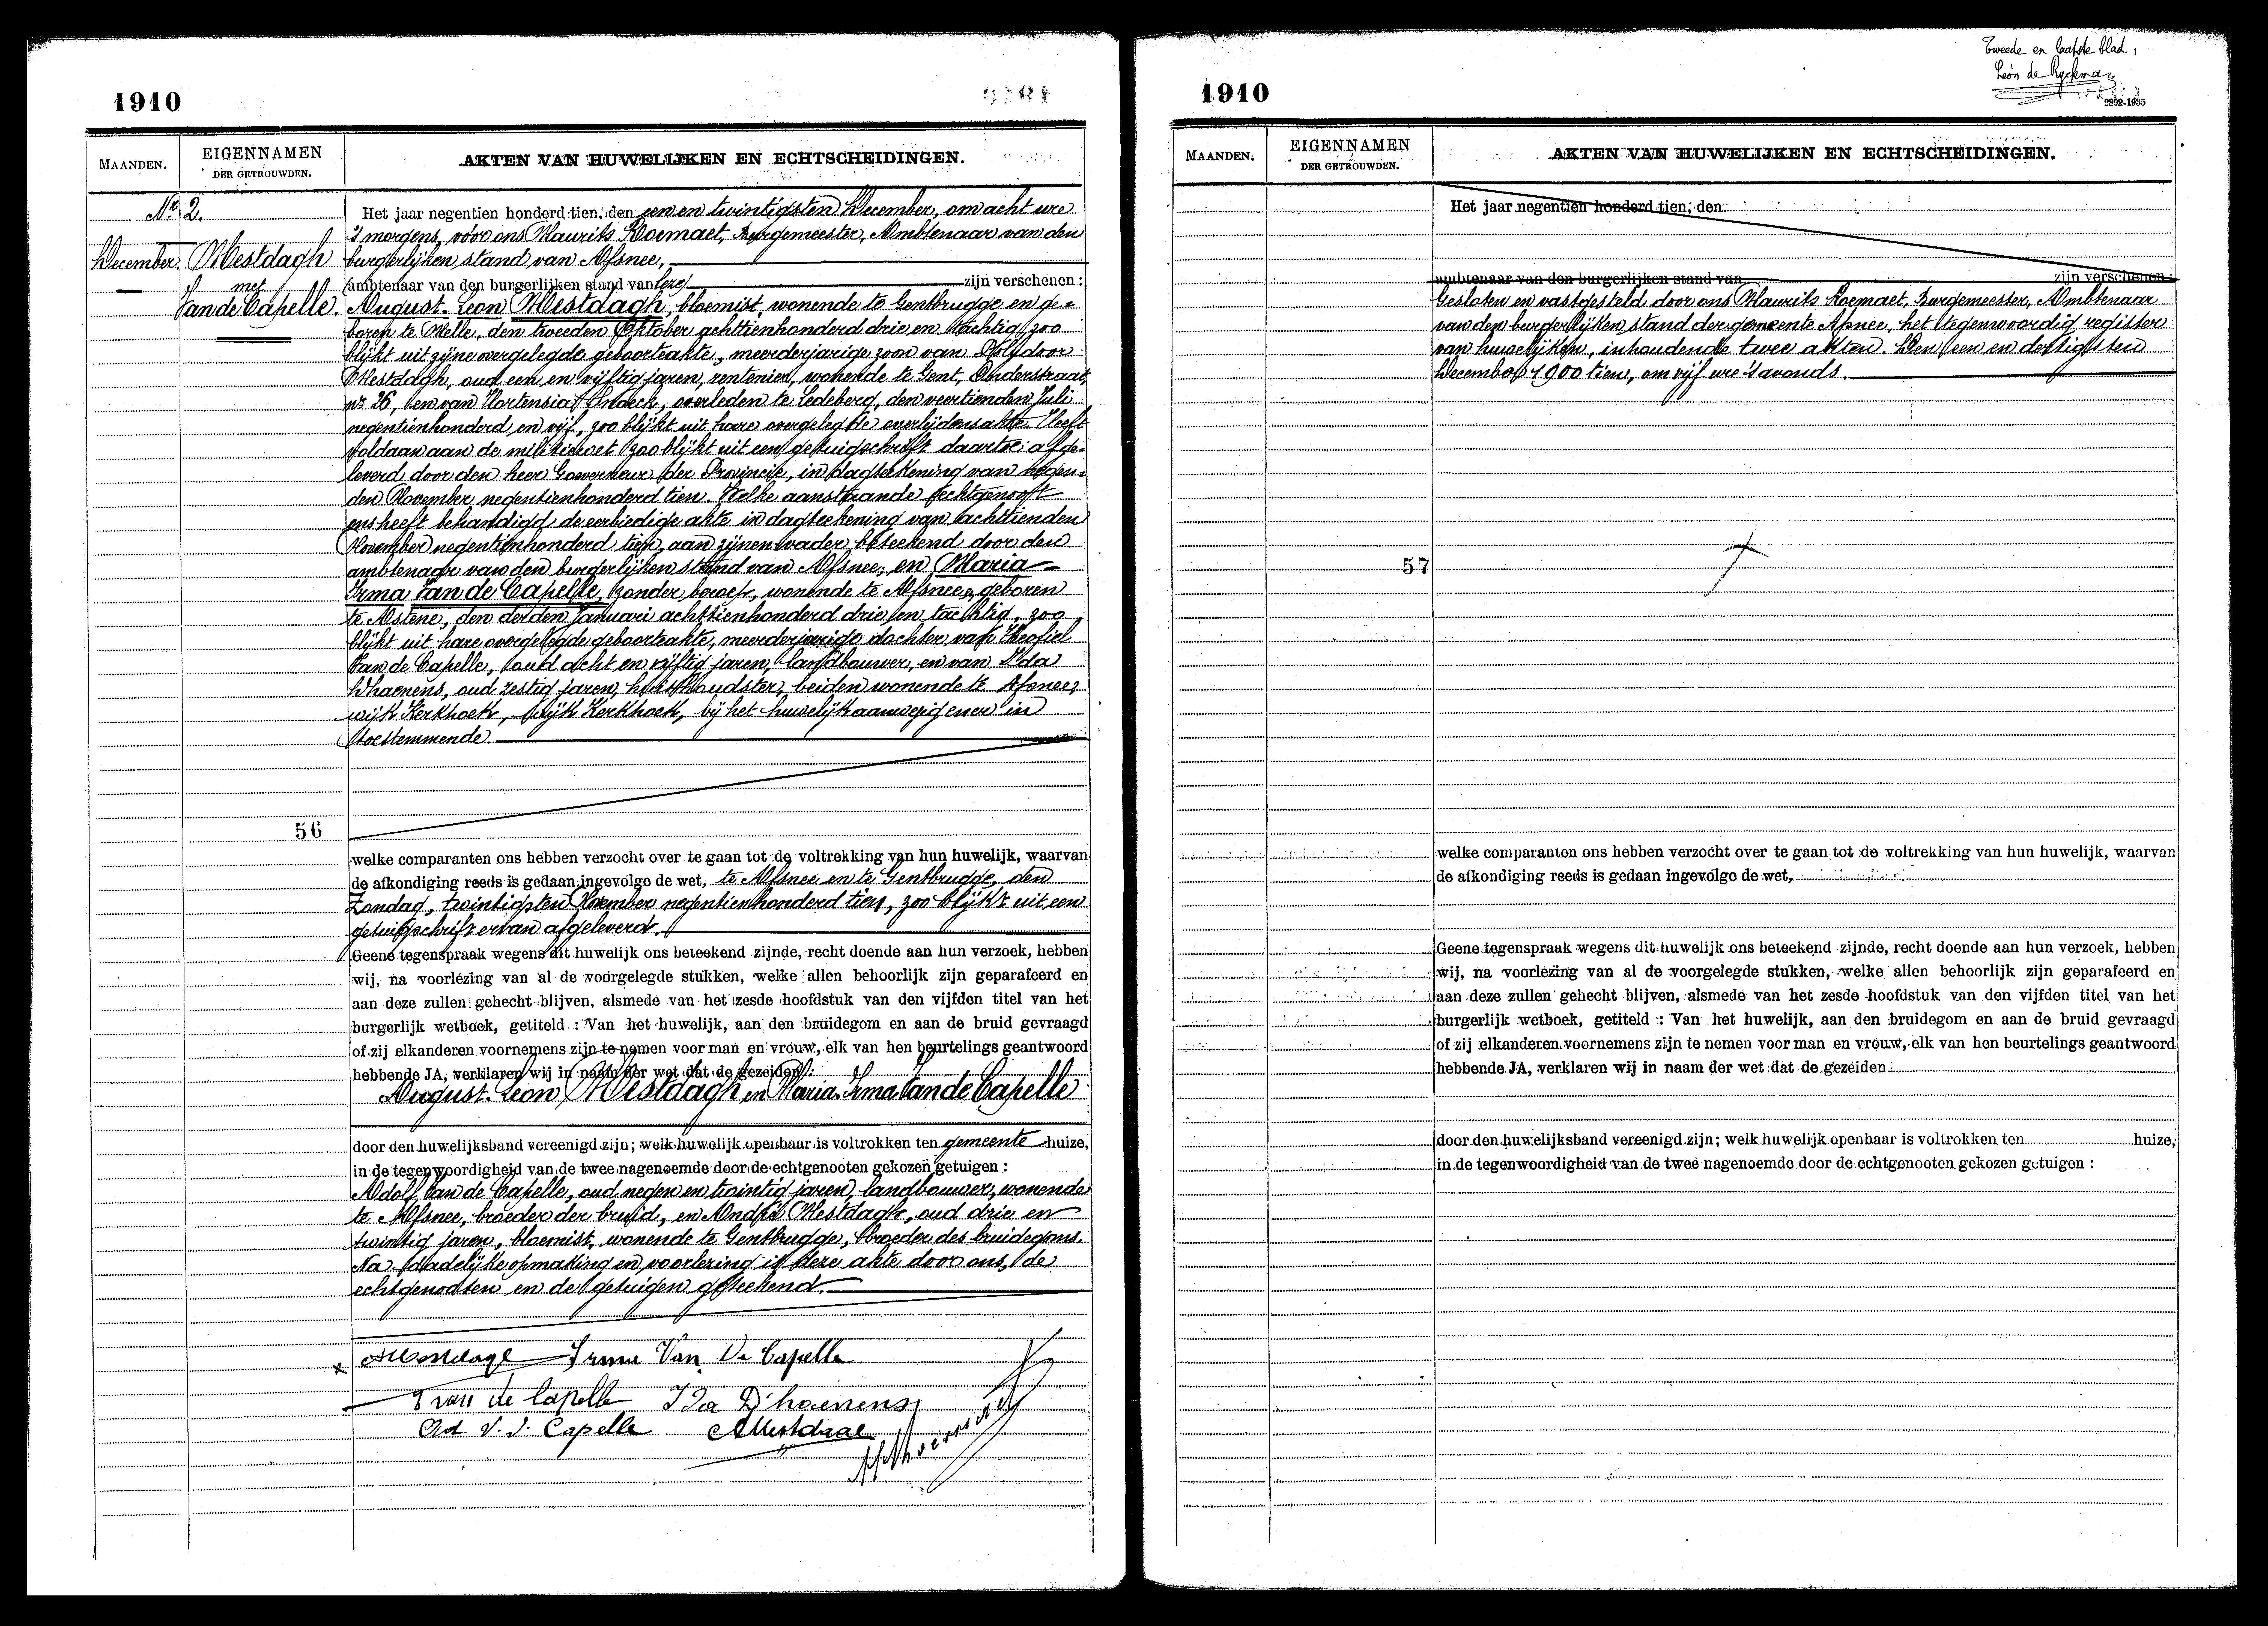 1910
MAANDEN.
EIGENNAMEN
DER GETROUWDEN.
AKTEN VAN HUWELIJKEN EN ECHTSCHEIDINGEN.
Nr 2.
December.
Mestdagh
met
Van de Capelle.
Het jaar negentien honderd tien, den een en twintigsten December, om acht ure
's morgens, vóór ons Maurits Roemaet, Burgemeester, Ambtenaar van den
burgerlijken stand van Afsnee,
ambtenaar van den burgerlijken stand van zijn verschenen :
August-Leon Mestdagh, bloemist, wonende te Gentbrugge en ge-
boren te Melle, den tweeden Oktober achttienhonderd drie en tachtig, zoo
blijkt uit zijne overgelegde geboorteakte, meerderjarige zoon van
Mestdagh, oud een en vijftig jaren, rentenier, wonende te Gent, Onderstraat,
nr 26, en van Hortensia overleden te Ledeberg, den veertienden Juli
negentienhonderd en vijf, zoo blijkt uit hare overgelegde overlijdensakte. Heeft
voldaan aan de militiewet zoo blijkt uit een getuigschrift daartoe afge-
leverd door den heer Gouverneur der Provincie, in dagteekening van negen-
den November negentienhonderd tien. Welke aanstaande echtgenoot
ons heeft behandigd de eerbiedige akte in dagteekening van achttienden
November negentienhonderd tien, aan zijnen vader beteekend door den
ambtenaar van den burgerlijken stand van Afsnee; en Maria-
Irma Van de Capelle, zonder beroep, wonende te Afsnee, geboren
te Astene, den derden Januari achttienhonderd drie en tachtig, zoo
blijkt uit hare overgelegde geboorteakte, meerderjarige dochter van Theofiel
Van de Capelle, oud acht en vijftig jaren, landbouwer, en van Ida
Dhaenens, oud zestig jaren, huishoudster, beiden wonende te Afsnee,
wijk Kerkhoek, wijk Kerkhoek, bij het huwelijk aanwezig en er in
toestemmende.
56
welke comparanten ons hebben verzocht over te gaan tot de voltrekking van hun huwelijk, waarvan
de afkondiging reeds is gedaan ingevolge de wet, te Afsnee en te Gentbrugge, den
Zondag, twintigsten November negentienhonderd tien, zoo blijkt uit een
getuigschrift ervan afgeleverd.
Geene tegenspraak wegens dit huwelijk ons beteekend zijnde, recht doende aan hun verzoek, hebben
wij, na voorlezing van al de voorgelegde stukken, welke allen behoorlijk zijn geparafeerd en
aan deze zullen gehecht blijven, alsmede van het zesde hoofdstuk van den vijfden titel van het
burgerlijk wetboek, getiteld : Van het huwelijk, aan den bruidegom en aan de bruid gevraagd
of zij elkanderen voornemens zijn te nemen voor man en vrouw, elk van hen beurtelings geantwoord
hebbende JA, verklaren wij in naam der wet dat de gezeiden :
August-Leon Mestdagh en Maria-Irma Van de Capelle
door den huwelijksband vereenigd zijn; welk huwelijk openbaar is voltrokken ten gemeente huize,
in de tegenwoordigheid van de twee nagenoemde door de echtgenooten gekozen getuigen :
Adolf Van de Capelle, oud negen en twintig jaren, landbouwer, wonende
te Afsnee, broeder der bruid, en André Mestdagh, oud drie en
twintig jaren, bloemist, wonende te Gentbrugge, broeder des bruidegoms.
Na dadelijke opmaking en voorlezing is deze akte door ons, de
echtgenooten en de getuigen geteekend.
Irma Van De Capelle
T van de Capelle Ida D'haenens
Ad. V. D. Capelle AMestdagh
Tweede en laatste blad,
Léon de Ryckman
2892-1935
1910
MAANDEN.
EIGENNAMEN
DER GETROUWDEN.
AKTEN VAN HUWELIJKEN EN ECHTSCHEIDINGEN.
Het jaar negentien honderd tien, den
ambtenaar van den burgerlijken stand van zijn verschenen :
Gesloten en vastgesteld door ons Maurits Roemaet, Burgemeester, Ambtenaar
van den burgerlijken stand der gemeente Afsnee, het tegenwoordig register
van huwelijken, inhoudende twee akten. Den een en dertigsten
December 1900 tien, om vijf ure 's avonds.
57
welke comparanten ons hebben verzocht over te gaan tot de voltrekking van hun huwelijk, waarvan
de afkondiging reeds is gedaan ingevolge de wet,
Geene tegenspraak wegens dit huwelijk ons beteekend zijnde, recht doende aan hun verzoek, hebben
wij, na voorlezing van al de voorgelegde stukken, welke allen behoorlijk zijn geparafeerd en
aan deze zullen gehecht blijven, alsmede van het zesde hoofdstuk van den vijfden titel van het
burgerlijk wetboek, getiteld : Van het huwelijk, aan den bruidegom en aan de bruid gevraagd
of zij elkanderen voornemens zijn te nemen voor man en vrouw, elk van hen beurtelings geantwoord
hebbende JA, verklaren wij in naam der wet dat de gezeiden
door den huwelijksband vereenigd zijn; welk huwelijk openbaar is voltrokken ten huize,
in de tegenwoordigheid van de twee nagenoemde door de echtgenooten gekozen getuigen :